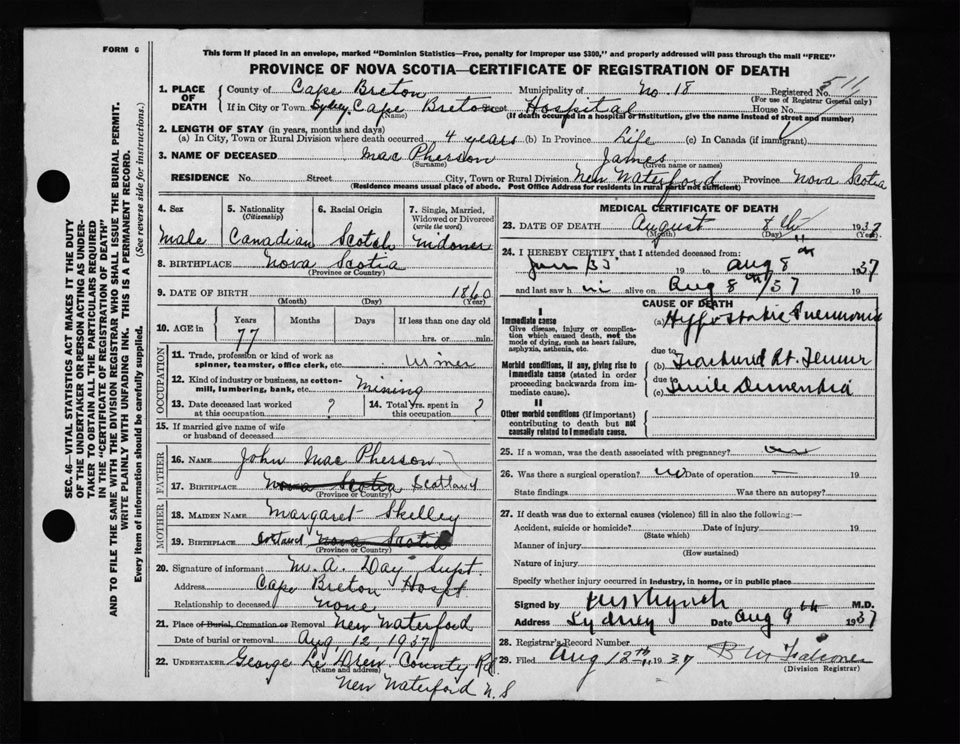 FORM 6
This form if placed in an envelope, marked "Dominion Statistics—Free, penalty for improper use $300," and properly addressed will pass through the mail "FREE"
PROVINCE OF NOVA SCOTIA—CERTIFICATE OF REGISTRATION OF DEATH
SEC. 46—VITAL STATISTICS ACT MAKES IT THE DUTY
OF THE UNDERTAKER OR PERSON ACTING AS UNDER-
TAKER TO OBTAIN ALL THE PARTICULARS REQUIRED
IN THE "CERTIFICATE OF REGISTRATION OF DEATH"
AND TO FILE THE SAME WITH THE DIVISION REGISTRAR WHO SHALL ISSUE THE BURIAL PERMIT.
WRITE PLAINLY WITH UNFADING INK. THIS IS A PERMANENT RECORD.
Every item of information should be carefully supplied. (See reverse side for instructions.)
1. PLACE OF DEATH County of Cape Breton Municipality of No. 18 Registered No. 511
(For use of Registrar General only)
If in City or Town Sydney Cape Breton Hospital House No.
(Name) (If death occurred in a hospital or institution, give the name instead of street and number)
2. LENGTH OF STAY (in years, months and days)
(a) In City, Town or Rural Division where death occurred 4 years (b) In Province Life (c) In Canada (if immigrant)
3. NAME OF DECEASED MacPherson James
(Surname) (Given name or names)
RESIDENCE No. Street City, Town or Rural Division New Waterford Province Nova Scotia
(Residence means usual place of abode. Post Office Address for residents in rural parts not sufficient)
4. Sex Male
5. Nationality (Citizenship) Canadian
6. Racial Origin Scotch
7. Single, Married, Widowed or Divorced (write the word) Widower
8. BIRTHPLACE Nova Scotia
(Province or Country)
9. DATE OF BIRTH 1860
(Month) (Day) (Year)
10. AGE in Years 77 Months Days If less than one day old
hrs. or min.
OCCUPATION
11. Trade, profession or kind of work as spinner, teamster, office clerk, etc. Miner
12. Kind of industry or business, as cotton-mill, lumbering, bank, etc. Mining
13. Date deceased last worked at this occupation ?
14. Total Yrs. spent in this occupation ?
15. If married give name of wife or husband of deceased
FATHER
16. NAME John MacPherson
17. BIRTHPLACE Nova Scotia Scotland
(Province or Country)
MOTHER
18. MAIDEN NAME Margaret Skelley
19. BIRTHPLACE Scotland Nova Scotia
(Province or Country)
20. Signature of informant M. A. Day Supt.
Address Cape Breton Hospt
Relationship to deceased none
21. Place of Burial, Cremation or Removal New Waterford
Date of burial or removal Aug, 12, 1937
22. UNDERTAKER George Le Drew County Rd.
(Name and address)
New Waterford N.S
MEDICAL CERTIFICATE OF DEATH
23. DATE OF DEATH August 8th 1937
(Month) (Day) (Year)
24. I HEREBY CERTIFY that I attended deceased from:
19 to Aug 8th 1937
and last saw him alive on Aug 8th/37 19
CAUSE OF DEATH
I
Immediate cause
Give disease, injury or complication which caused death, not the mode of dying, such as heart failure, asphyxia, asthenia, etc.
(a) Hypostatic Pneumonia
due to
Morbid conditions, if any, giving rise to immediate cause (stated in order proceeding backwards from immediate cause).
(b) Fractured Rt. Femur
due to
(c) Senile Dementia
II
Other morbid conditions (if important) contributing to death but not causally related to immediate cause.
25. If a woman, was the death associated with pregnancy?
26. Was there a surgical operation? no Date of operation — 19
State findings Was there an autopsy?
27. If death was due to external causes (violence) fill in also the following:—
Accident, suicide or homicide? Date of injury 19
(State which)
Manner of injury
(How sustained)
Nature of injury
Specify whether injury occurred in industry, in home, or in public place
Signed by M.D.
Address Sydney Date Aug 9th 1937
28. Registrar's Record Number
29. Filed Aug 12th 1937
(Division Registrar)